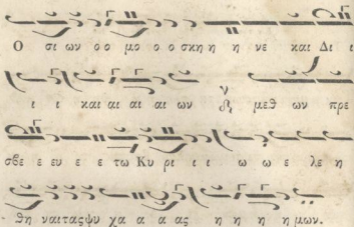 Ο σι ων ο ο μο ο ο σκη η η νε και Δι ι
ι ι και αι αι αι ων μεθ ων πρε
σβε ε ευ ε ε τω Κυ ρι ι ι ω ω ε λε η
θη ναιταςψυ χα α α ας η η η η μων.